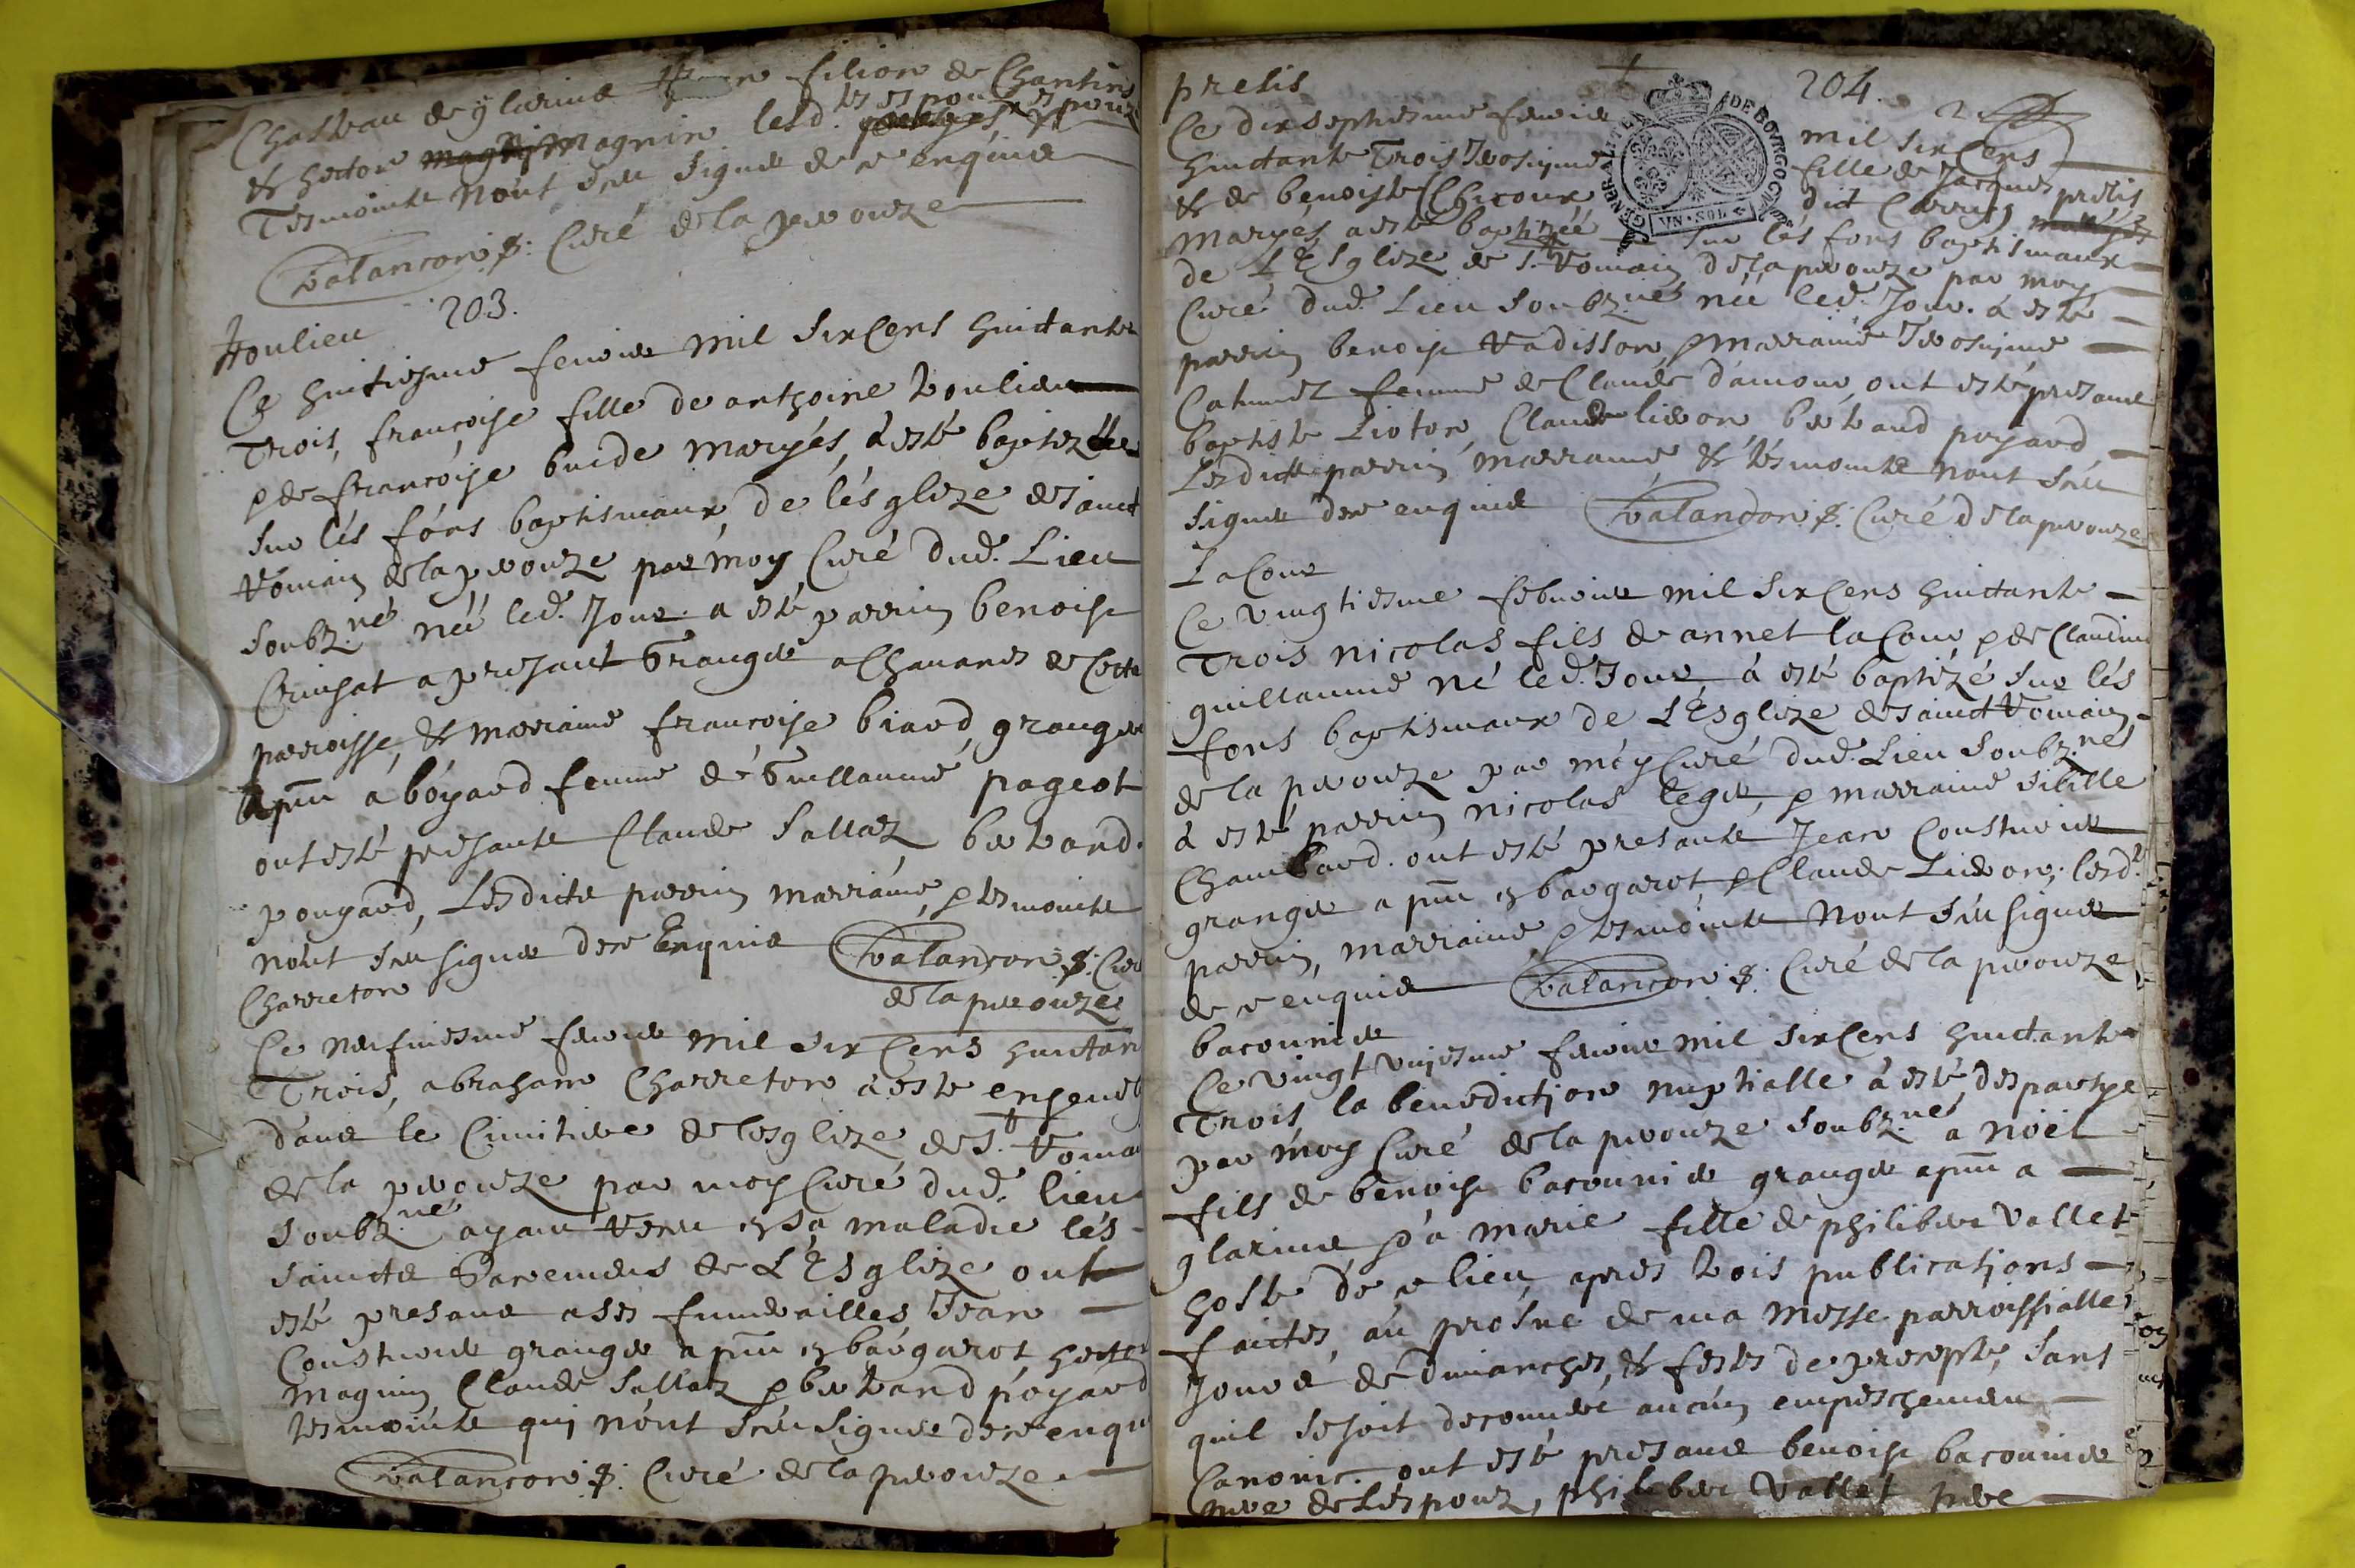 Chasteau de glarine filion de Chantins
& hector magnin Magnin lesd. espouz espouze
Tesmointz nont sceu signer de ce enquis
Valancon p. Curé de la perouze
203.
Troulieu
Ce huitiesme feuvrier mil six Cens huictante
Trois, françoise fille de anthoine troulieu
& de françoise buide maryés, a esté baptizée
sur lés fons baptismaux de lésglize de sainct
Romain de la perouze par moy Curé dud. Lieu
soubz.né née led. Jour a esté parrin benoist
Crinsat a presant Granger a Chauanes de Cette
parroisse, & marraine françoise biard, granger
a pnt a boyard femme de Guillaume pageot
ont esté presantz Claude Sallaz bertrand
poyard, Lesdictz parrin marraine, & tesmointz
nont sceu signer de ce Enquis Valancon p. Curé
de la perouze
Charreton
Ce neufuiesme feurier mil six Cens huictan
Trois, abraham Charreton a esté enseuely
dans le Cimitiere de lesglize de S.t Romain
de la perouze par moy Curé dud. lieu
soubz.né ayant receu en sa maladie lés
sainctz Sacremens de L'Esglize ont
esté presans a ses funerailles Jean
Cousturier granger a pnt en bargarot hector
magnin Claude Sallaz & bertrand poyard
tesmointz qui nont sceu signer de ce enquis
Valancon p. Curé de la perouze
204.
prelis
Ce dixseptiesme feurier mil six Cens
huictante Trois Jerosnyme fille de Jacques prelis
& de benoiste Chicoux dit
maryés a esté baptizée sur lés fons baptismaux
de L'Esglize de S.t Romain de la perouze par moy
Curé dud. Lieu soubz.né née led. Jour. a esté
parrin benoist Radisson, & marraine Jerosnyme
Catumel femme de Claude damour ont esté presans
baptiste Lioton Claude lieron bertrand poyard
Lesdictz parrin marraine & tesmointz nont sceu
signer de ce enquis Valancon p. Curé de la perouze
LaCour
Ce vingtiesme febvrier mil six Cens huictante
Trois nicolas fils de annet laCour & de Claudine
guillaume né led. Jour a esté baptizé sur lés
fons baptismaux de L'Esglize de sainct Romain
de la perouze par moy Curé dud. Lieu soubz.nés
a esté parrin nicolas leger, & marraine sibille
Chambard. ont esté presantz Jean Coustuvier
granger a pnt en bargarot & Claude Lieron; lesd.
parrin, marraine & tesmointz Nont sceu signer
de ce enquis Valancon p. Curé de la perouze
bacounier
Ce vingt vniesme feurier mil six Cens huictante
Trois la benediction nuptialle a esté despartye
par moy Curé de la perouze soubz.nés a noël
fils de benoist bacounier granger a pnt a
glarine & a marie fille de philibert Vallet
hoste de ce lieu apres trois publications
faictes, au prosne de ma messe parroissialle
Jours de dimanches, & festes de precepte, sans
quil se soit decouuert aucun empeschemen
Canonic. ont esté presans benoist bacounier
pere de Lespoux, philibert Vallet pere
GENERALITE DE BOVRGOGNE
VN·SOL